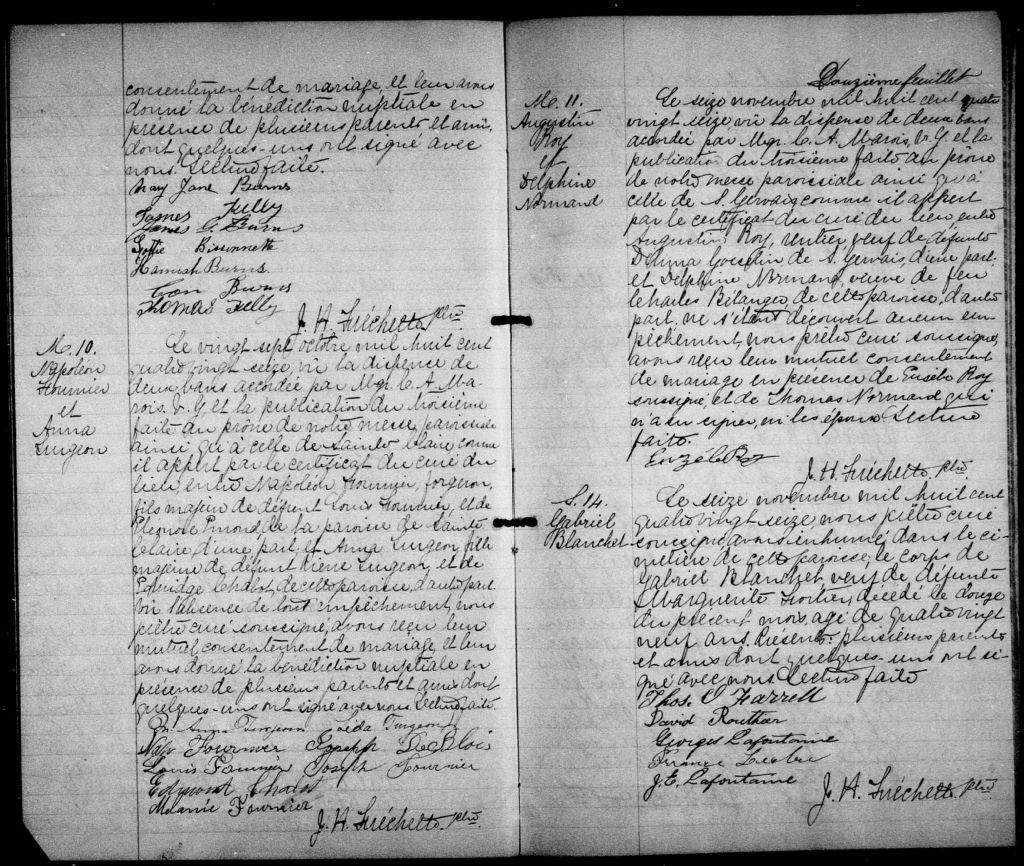 consentement de mariage, et leur avons
donné la bénédiction nuptiale en
présence de plusieurs parents et amis,
dont quelques-uns ont signé avec
nous. Lecture faite.
Mary Jane Burns
James Kelly
James G. Burns
Bissonnette
Hannah Burns
Burns
Thomas Kelly
J. H. Fréchette ptre
M. 10.
Napoléon
Fournier
et
Anna
Turgeon
Le vingt sept octobre mil huit cent
quatre vingt seize, vu la dispense de
deux bans accordée par Mgr. C. A. Ma-
rois. V. G. et la publication du troisième
faite au prône de notre messe paroissiale
ainsi qu'à celle de Sainte Claire comme
il appert par le certificat du curé du
lieu, entre Napoléon Fournier, forgeron,
fils majeur de défunt Louis Fournier, et de
de la paroisse de Sainte
Claire, d'une part; et Anna Turgeon, fille
majeure de défunt Turgeon, et de
Chabot, de cette paroisse, d'autre part.
Vu l'absence de tout empêchement, nous
prêtre curé soussigné, avons reçu leur
mutuel consentement de mariage, et leur
avons donné la bénédiction nuptiale en
présence de plusieurs parents et amis dont
quelques-uns ont signé avec nous. Lecture faite.
Anna Turgeon Léda Turgeon
Nap Fournier Joseph DeBlois
Louis Fournier Joseph Fournier
Edmond Chabot
Mélanie Fournier
J. H. Fréchette ptre
Douzième feuillet
M. 11.
Augustin
Roy
et
Delphine
Normand
Le seize novembre mil huit cent quatre
vingt seize vu la dispense de deux bans
accordée par Mgr. C. A. Marois, V. G. et la
publication du troisième faite au prône
de notre messe paroissiale ainsi qu'à
celle de S. Gervais comme il appert
par le certificat du curé du lieu entre
Augustin Roy, rentier, veuf de défunte
Gosselin de S. Gervais, d'une part.
et Delphine Normand, veuve de feu
Charles Bélanger, de cette paroisse, d'autre
part, ne s'étant découvert aucun em-
pêchement, nous prêtre curé soussigné,
avons reçu leur mutuel consentement
de mariage en présence de Eusèbe Roy
soussigné, et de Thomas Normand qui
n'a su signer, ni les époux. Lecture
faite.
Euzèbe Roy
J. H. Fréchette ptre
S. 14.
Gabriel
Blanchet
Le seize novembre mil huit cent
quatre vingt seize, nous prêtre curé
soussigné, avons inhumé dans le ci-
metière de cette paroisse, le corps de
Gabriel Blanchet, veuf de défunte
Marguerite Fortier, décédé le douze
du présent mois, agé de quatre vingt
neuf ans. Présents: plusieurs parents
et amis dont quelques-uns ont si-
gné avec nous. Lecture faite
Thos. O Farrell
David Routhier
Georges Lafontaine
J. E. Lafontaine
J. H. Fréchette ptre